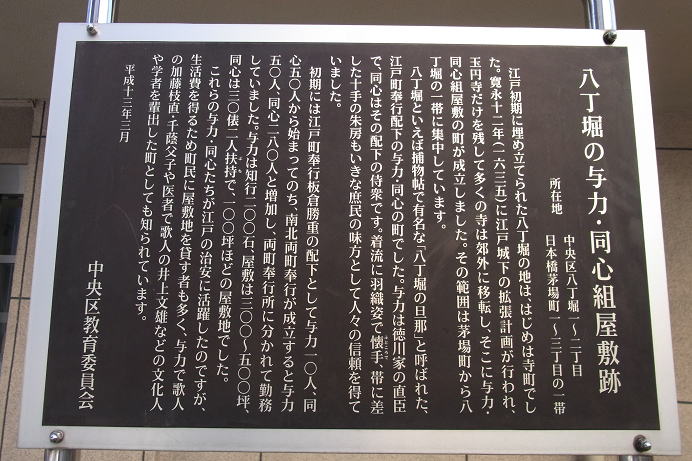 八丁堀の与力・同心組屋敷跡
所在地 中央区八丁堀一～二丁目
日本橋茅場町一～三丁目の一帯
江戸初期に埋め立てられた八丁堀の地は、はじめは寺町でし
た。寛永十二年(一六三五)に江戸城下の拡張計画が行われ、
玉円寺だけを残して多くの寺は郊外に移転し、そこに与力・
同心組屋敷の町が成立しました。その範囲は茅場町から八
丁堀の一帯に集中しています。
八丁堀といえば捕物帖で有名な「八丁堀の旦那」と呼ばれた、
江戸町奉行配下の与力・同心の町でした。与力は徳川家の直臣
で、同心はその配下の侍衆です。着流に羽織姿で懐手、帯に差
した十手の朱房もいきな庶民の味方として人々の信頼を得て
いました。
初期には江戸町奉行板倉勝重の配下として与力一〇人、同
心五〇人から始まってのち、南北両町奉行が成立すると与力
五〇人、同心二八〇人と増加し、両町奉行所に分かれて勤務
していました。与力は知行二〇〇石、屋敷は三〇〇～五〇〇坪、
同心は三〇俵二人扶持で、一〇〇坪ほどの屋敷地でした。
これらの与力・同心たちが江戸の治安に活躍したのですが、
生活費を得るため町民に屋敷地を貸す者も多く、与力で歌人
の加藤枝直・千蔭父子や医者で歌人の井上文雄などの文化人
や学者を輩出した町としても知られています。
平成十三年三月
中央区教育委員会